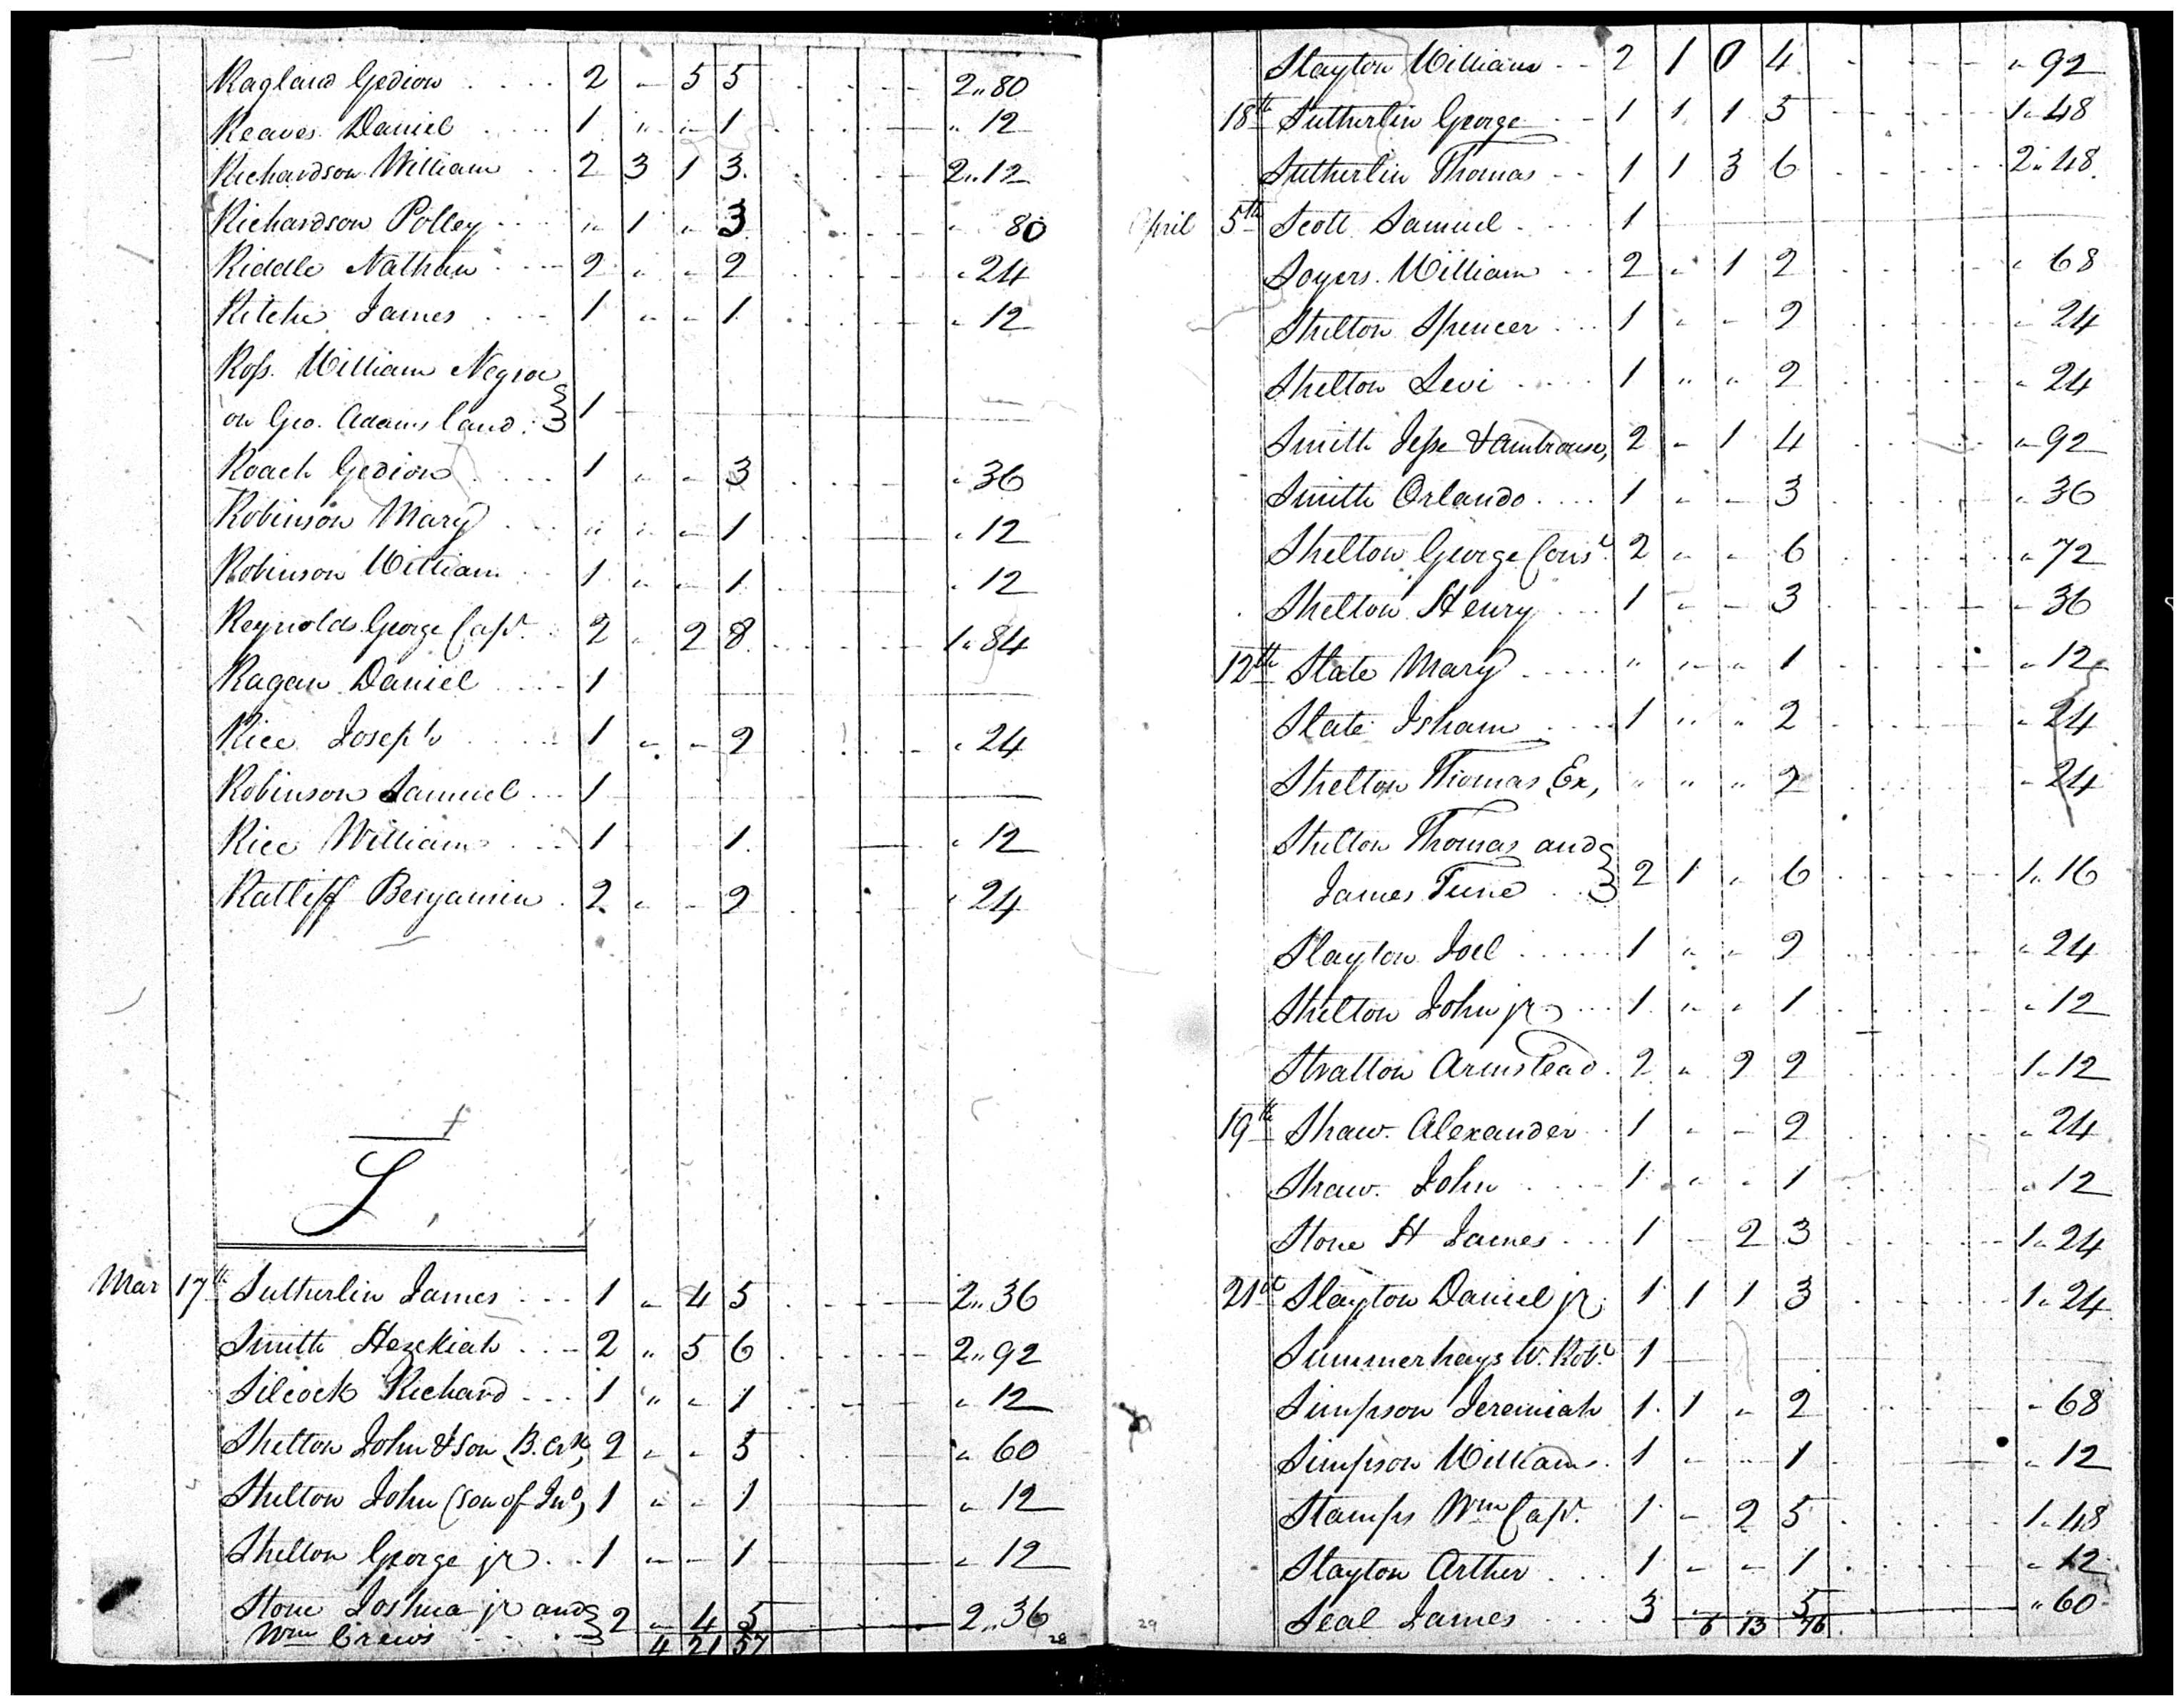 Ragland Gedion .... 2 - 5 5 .... 2..80
Reaves Daniel .... 1 " - 1 .... " 12
Richardson William .. 2 3 1 3 .... 2..12
Richardson Polley .... " 1 " 3 .... " 80
Riddle Nathan .... 2 " - 2 .... " 24
Ritchie James .... 1 " - 1 .... " 12
Ross William Negroe
on Geo. Adams land. } 1
Roach Gedion .... 1 " - 3 .... " 36
Robinson Mary .... " " - 1 .... " 12
Robinson William .. 1 " - 1 .... " 12
Reynolds George Capt. .. 2 " 2 8 .... 1"84
Ragan Daniel .... 1
Rice Joseph .... 1 " - 2 .... " 24
Robinson Samuel ... 1
Rice William .... 1 1 .... " 12
Ratliff Benjamin . 2 " - 2 .... " 24
S
Mar 17th Sutherlin James .... 1 " 4 5 .... 2..36
Smith Hezekiah .... 2 " 5 6 .... 2..92
Silcock Richard .... 1 " - 1 .... " 12
Shelton John & Son (B. Crk) 2 - - 5 .... " 60
Shelton John (son of Jno) 1 " - 1 .... " 12
Shelton George jr ... 1 - - 1 .... " 12
Stone Joshua jr and
Wm Crews } 2 - 4 5 .... 2..36
4 21 57
28
Slayton William .. 2 1 0 4 .... " 92
18th Sutherlin George .. 1 1 1 5 .... 1"48
Sutherlin Thomas .. 1 1 3 6 .... 2"48
April 5th Scott Samuel .... 1
Soyers William .. 2 " 1 2 .... " 68
Shelton Spencer ... 1 " - 2 .... " 24
Shelton Levi .... 1 " " 2 .... " 24
Smith Jesse & Ambrouse, 2 - 1 4 .... " 92
Smith Orlando .... 1 - - 3 .... " 36
Shelton George Const 2 " - 6 .... " 72
Shelton Henry ... 1 - - 3 .... " 36
12th Slate Mary .... " " " 1 .... " 12
Slate Isham .... 1 " " 2 .... " 24
Shelton Thomas Ex, " " " 2 .... " 24
Shelton Thomas and
James Tune .. } 2 1 " 6 .... 1"16
Slayton Joel .... 1 " " 2 .... " 24
Shelton John jr. ... 1 " " 1 .... " 12
Stratton Armstead . 2 " 2 2 .... 1"12
19th Shaw Alexander . 1 - - 2 .... " 24
Shaw John .... 1 " " 1 .... " 12
Stone H James ... 1 - 2 3 .... 1"24
21st Slayton Daniel jr. 1 1 1 3 .... 1"24
Summerhays W. Robt 1
Simpson Jeremiah 1 1 " 2 .... " 68
Simpson William . 1 - - 1 .... " 12
Stamps Wm Capt. 1 - 2 5 .... 1"48
Slayton Arther ... 1 - - 1 .... " 12
Seal James ... 3 5 .... " 60
6 13 76
29